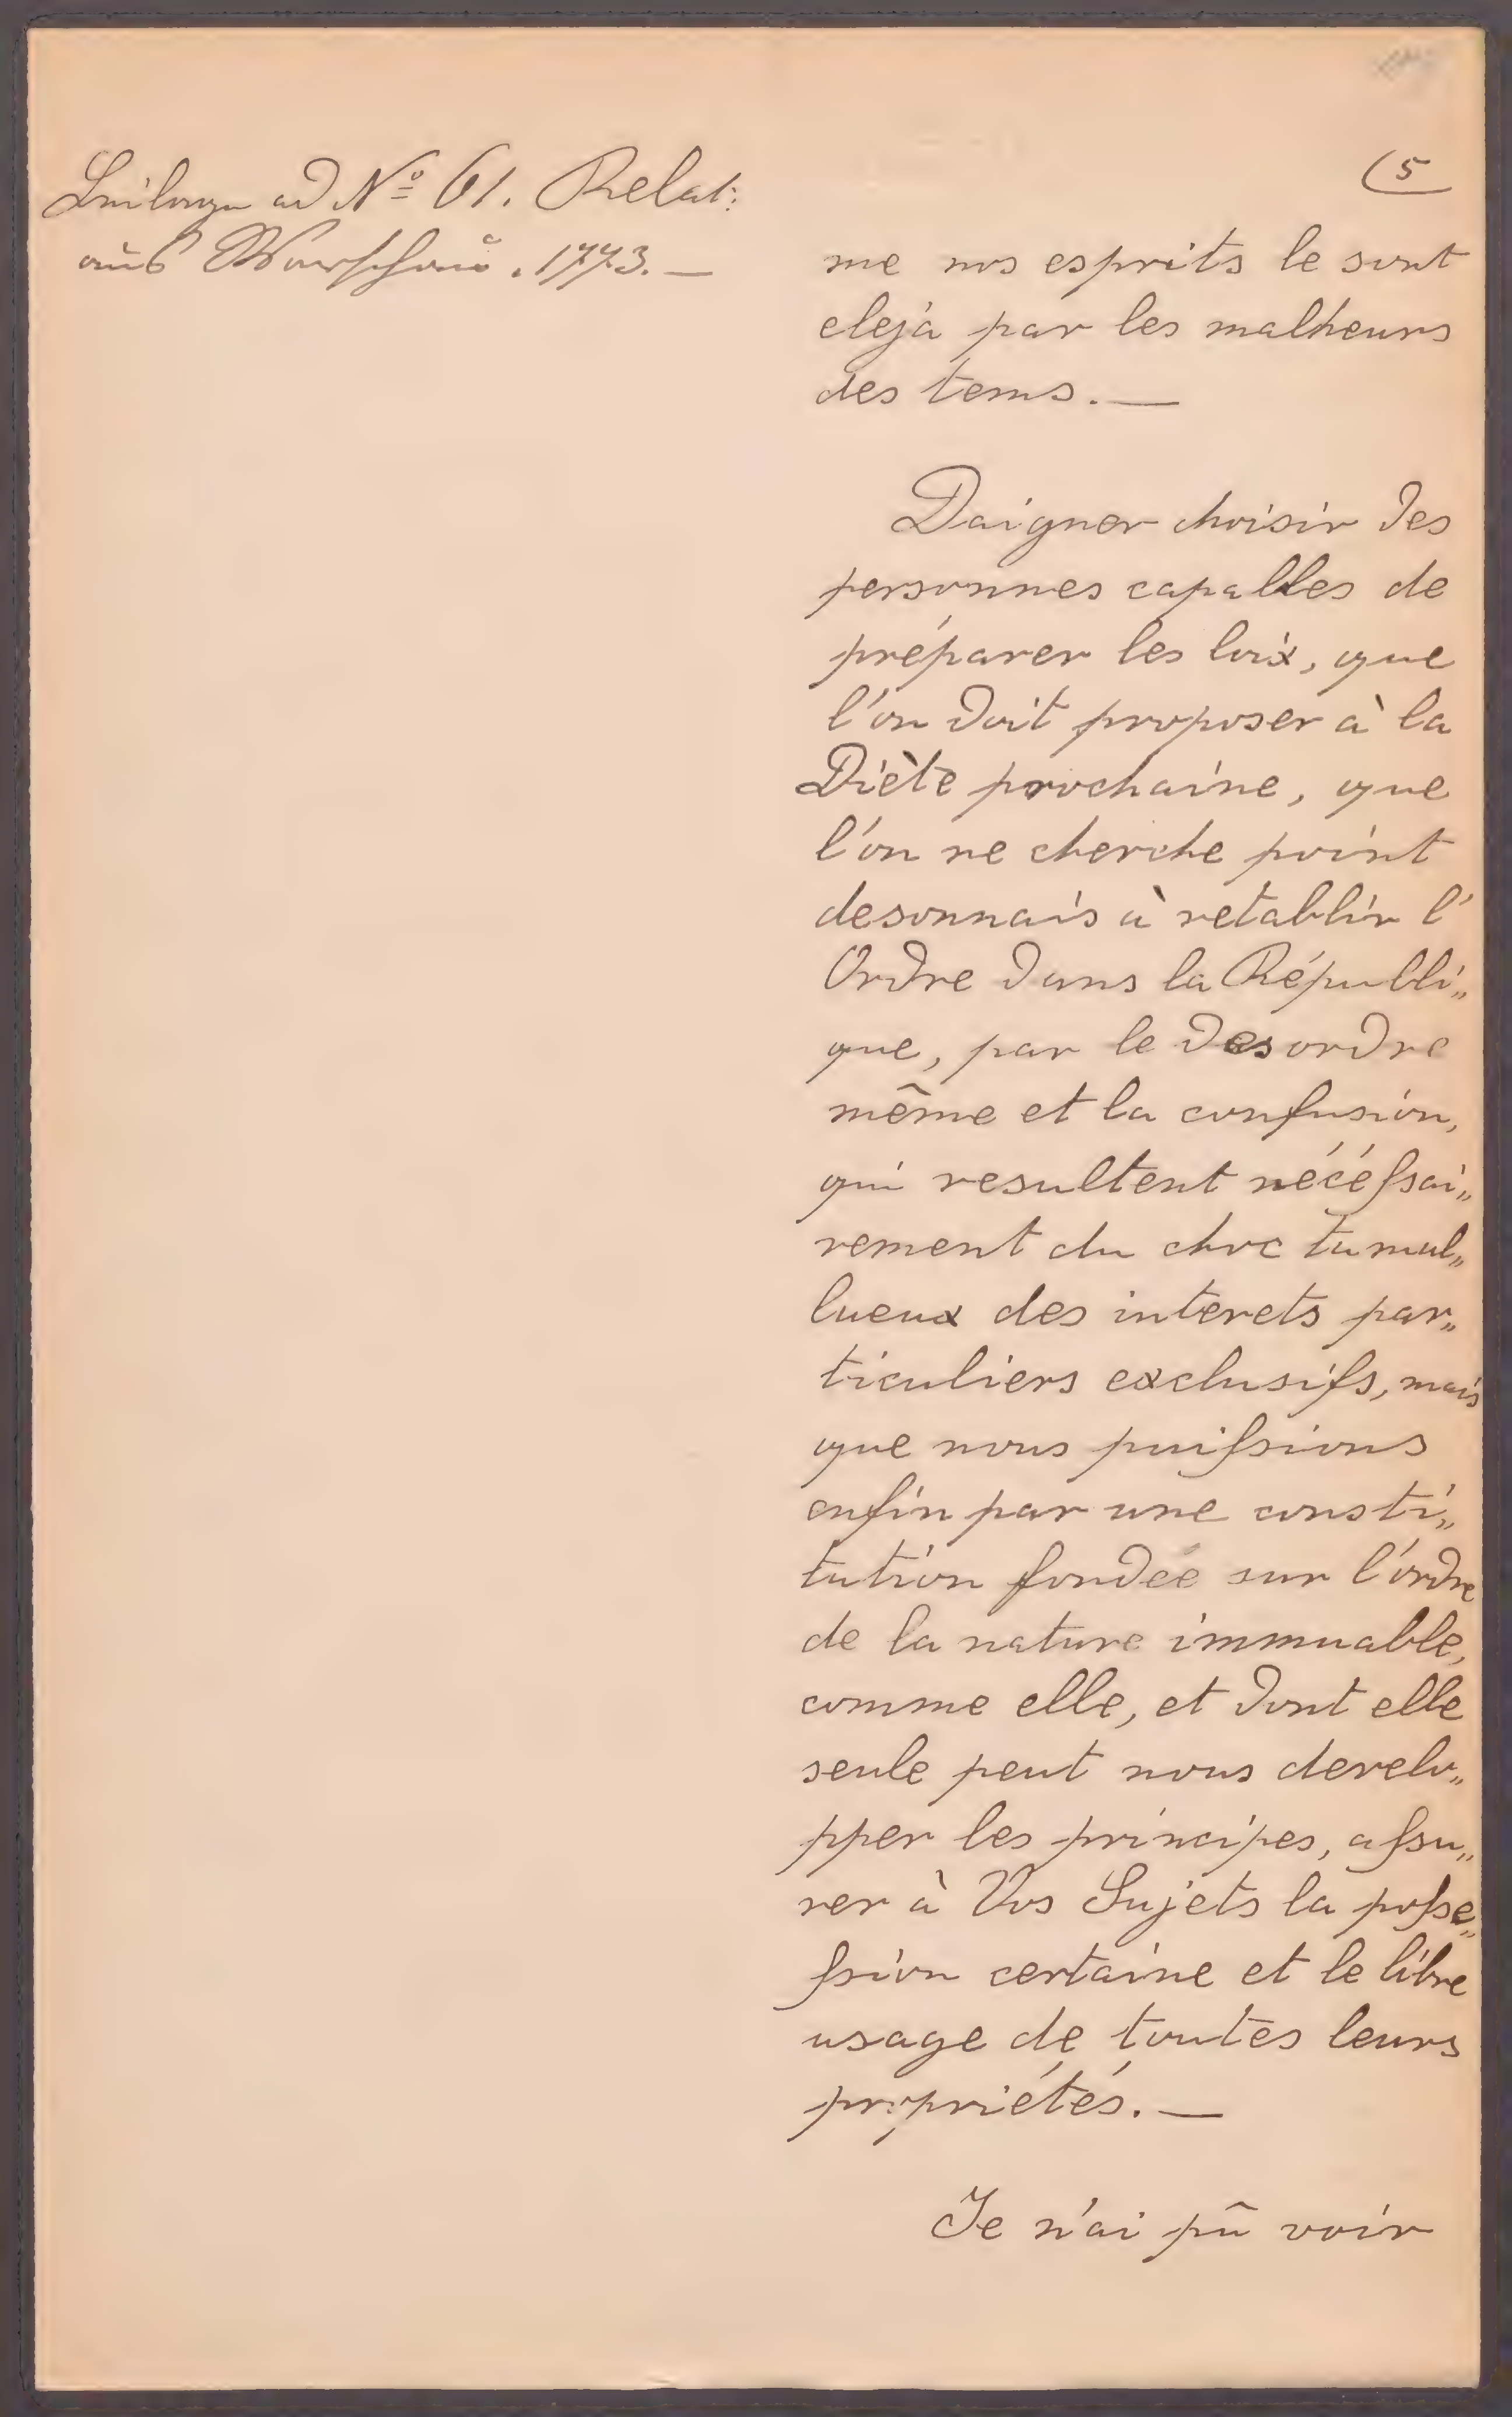 Beilage ad No 61. Relat:
aus Warschau. 1773. —
(5
me nos esprits le sont
dejà par les malheurs
des tems. —
Daigner choisir des
personnes capables de
préparer les loix, que
l'on doit proposer à la
Diète prochaine, que
l'on ne cherche point
desonnais à retablir l'
Ordre dans la Républi„
que, par le desordre
même et la confusion,
qui resultent nécéssai„
rement du choc tumul„
tueux des interets par„
ticuliers exclusifs, mais
que nous puissions
enfin par une consti„
tution fondée sur l'ordre
de la nature immuable,
comme elle, et dont elle
seule peut nous develo„
pper les principes, assu„
rer à Vos Sujets la posse„
ssion certaine et le libre
usage de toutes leurs
propriétés. —
Je n'ai pû voir